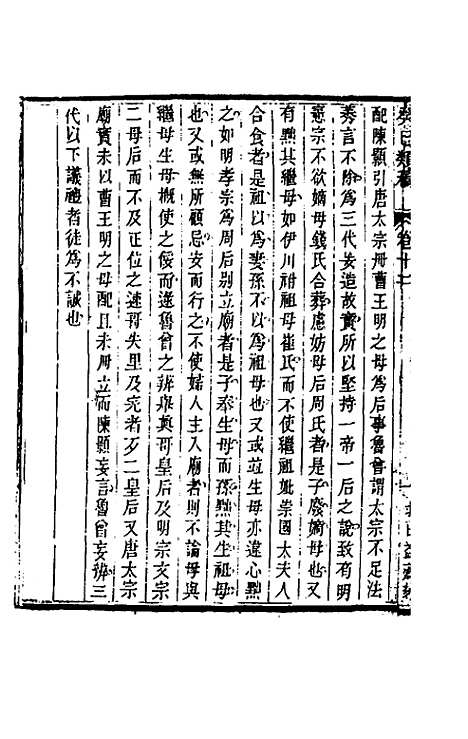 癸巳類稿 卷十二
配陳顥引唐太宗冊曹王明之母為后事魯曾謂太宗不足法
莠言不除為三代妄造故實所以堅持一帝一后之說致有明
憲宗不欲嫡母錢氏合葬慮妨母后周氏者是子廢嫡母也又
有黜其繼母如伊川祔祖母崔氏而不使繼祖妣崇國太夫人
合食者是祖以為妻孫不以為祖母也又或竝生母亦違心黜
之如明孝宗為周后別立廟者是子奉生母而孫黜其生祖母
也又或無所顧忌妄而行之不使婦人主入廟者則不論母與
繼母生母概使之餒而遂魯曾之辨弗與哥皇后及明宗文宗
二母后而不及正位之速哥失里及完者歹二皇后又唐太宗
廟實未以曹王明之母配且未冊立而陳顥妄言魯曾妄辨三
代以下議禮者徒為不誠也